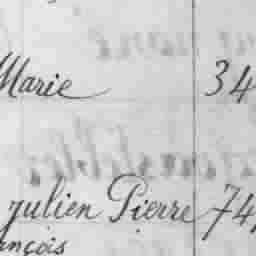 Marie 34
julien Pierre 74
ançois